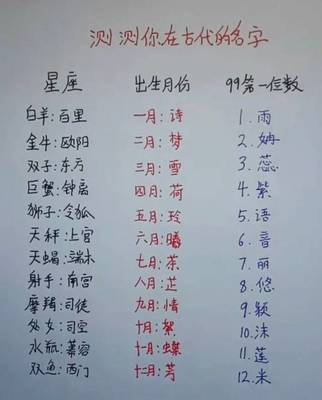 测测你在古代的名字
星座 出生月份 99第一位数
白羊:百里 一月:诗 1.雨
金牛:欧阳 二月:梦 2.妠
双子:东方 三月:雪 3.蕊
巨蟹:钟离 四月:荷 4.紫
狮子:令狐 五月:玲 5.语
天秤:上官 六月:曦 6.音
天蝎:端木 七月:茶 7.丽
射手:南宫 八月:芷 8.悠
摩羯:司徒 九月:情 9.颖
处女:司空 十月:絮 10.沫
水瓶:慕容 十一月:蝶 11.莲
双鱼:西门 十二月:芳 12.米